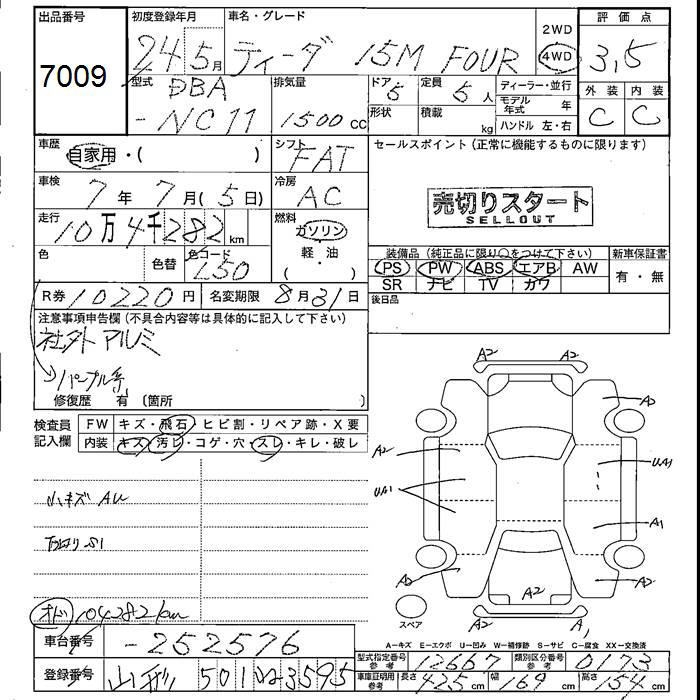 出品番号
7009
初度登録年月
24年5月
車名・グレード
ティーダ 15M FOUR
2WD
4WD
評価点
3,5
外装 内装
C C
型式
DBA
-NC11
排気量
1500cc
ドア
5
形状
定員
5人
積載
kg
ディーラー・並行
モデル年式 年
ハンドル 左・右
車歴
自家用・( )
シフト
FAT
セールスポイント(正常に機能するものに限ります)
車検
7年7月(5日)
冷房
AC
売切りスタート
SELLOUT
走行
10万4千282km
燃料
ガソリン
軽・油
( )
色
色替
色コード
L50
装備品(純正品に限り○をつけて下さい)
PS PW ABS エアB AW
SR ナビ TV カワ
新車保証書
有・無
R券 10220円
名変期限 8月31日
後日品
注意事項申告欄(不具合内容等は具体的に記入して下さい)
社外アルミ
パープル系
修復歴 有(箇所 )
検査員記入欄
FW キズ・飛石・ヒビ割・リペア跡・X要
内装 キズ・汚レ・コゲ・穴・スレ・キレ・破レ
小キズ AU
下回り S1
オド 104282km
A2 A2
A2
A2
UA1
UA1
A1
A2
A2
A2
A2
A1
スペア
A−キズ E−エクボ U−凹み W−補修跡 S−サビ C−腐食 XX−交換済
車台番号
-252576
型式指定番号 参考 12667
類別区分番号 参考 0173
登録番号
山形 501 ゆ 3595
車庫証明用 参考 長さ 425cm 幅 169cm 高さ 154cm